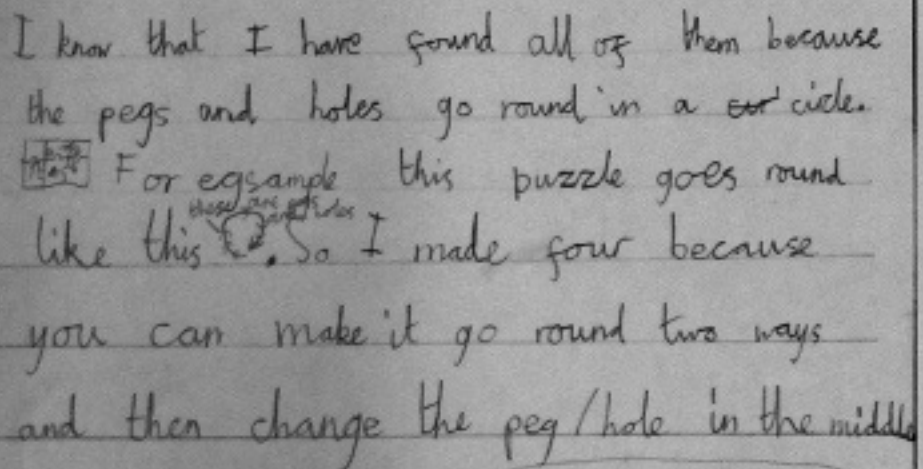 I know that I have found all of them because
the pegs and holes go round in a circle.
For egsample this puzzle goes round
these are pegs
and holes
like this . So I made four because
you can make it go round two ways
and then change the peg/hole in the middle